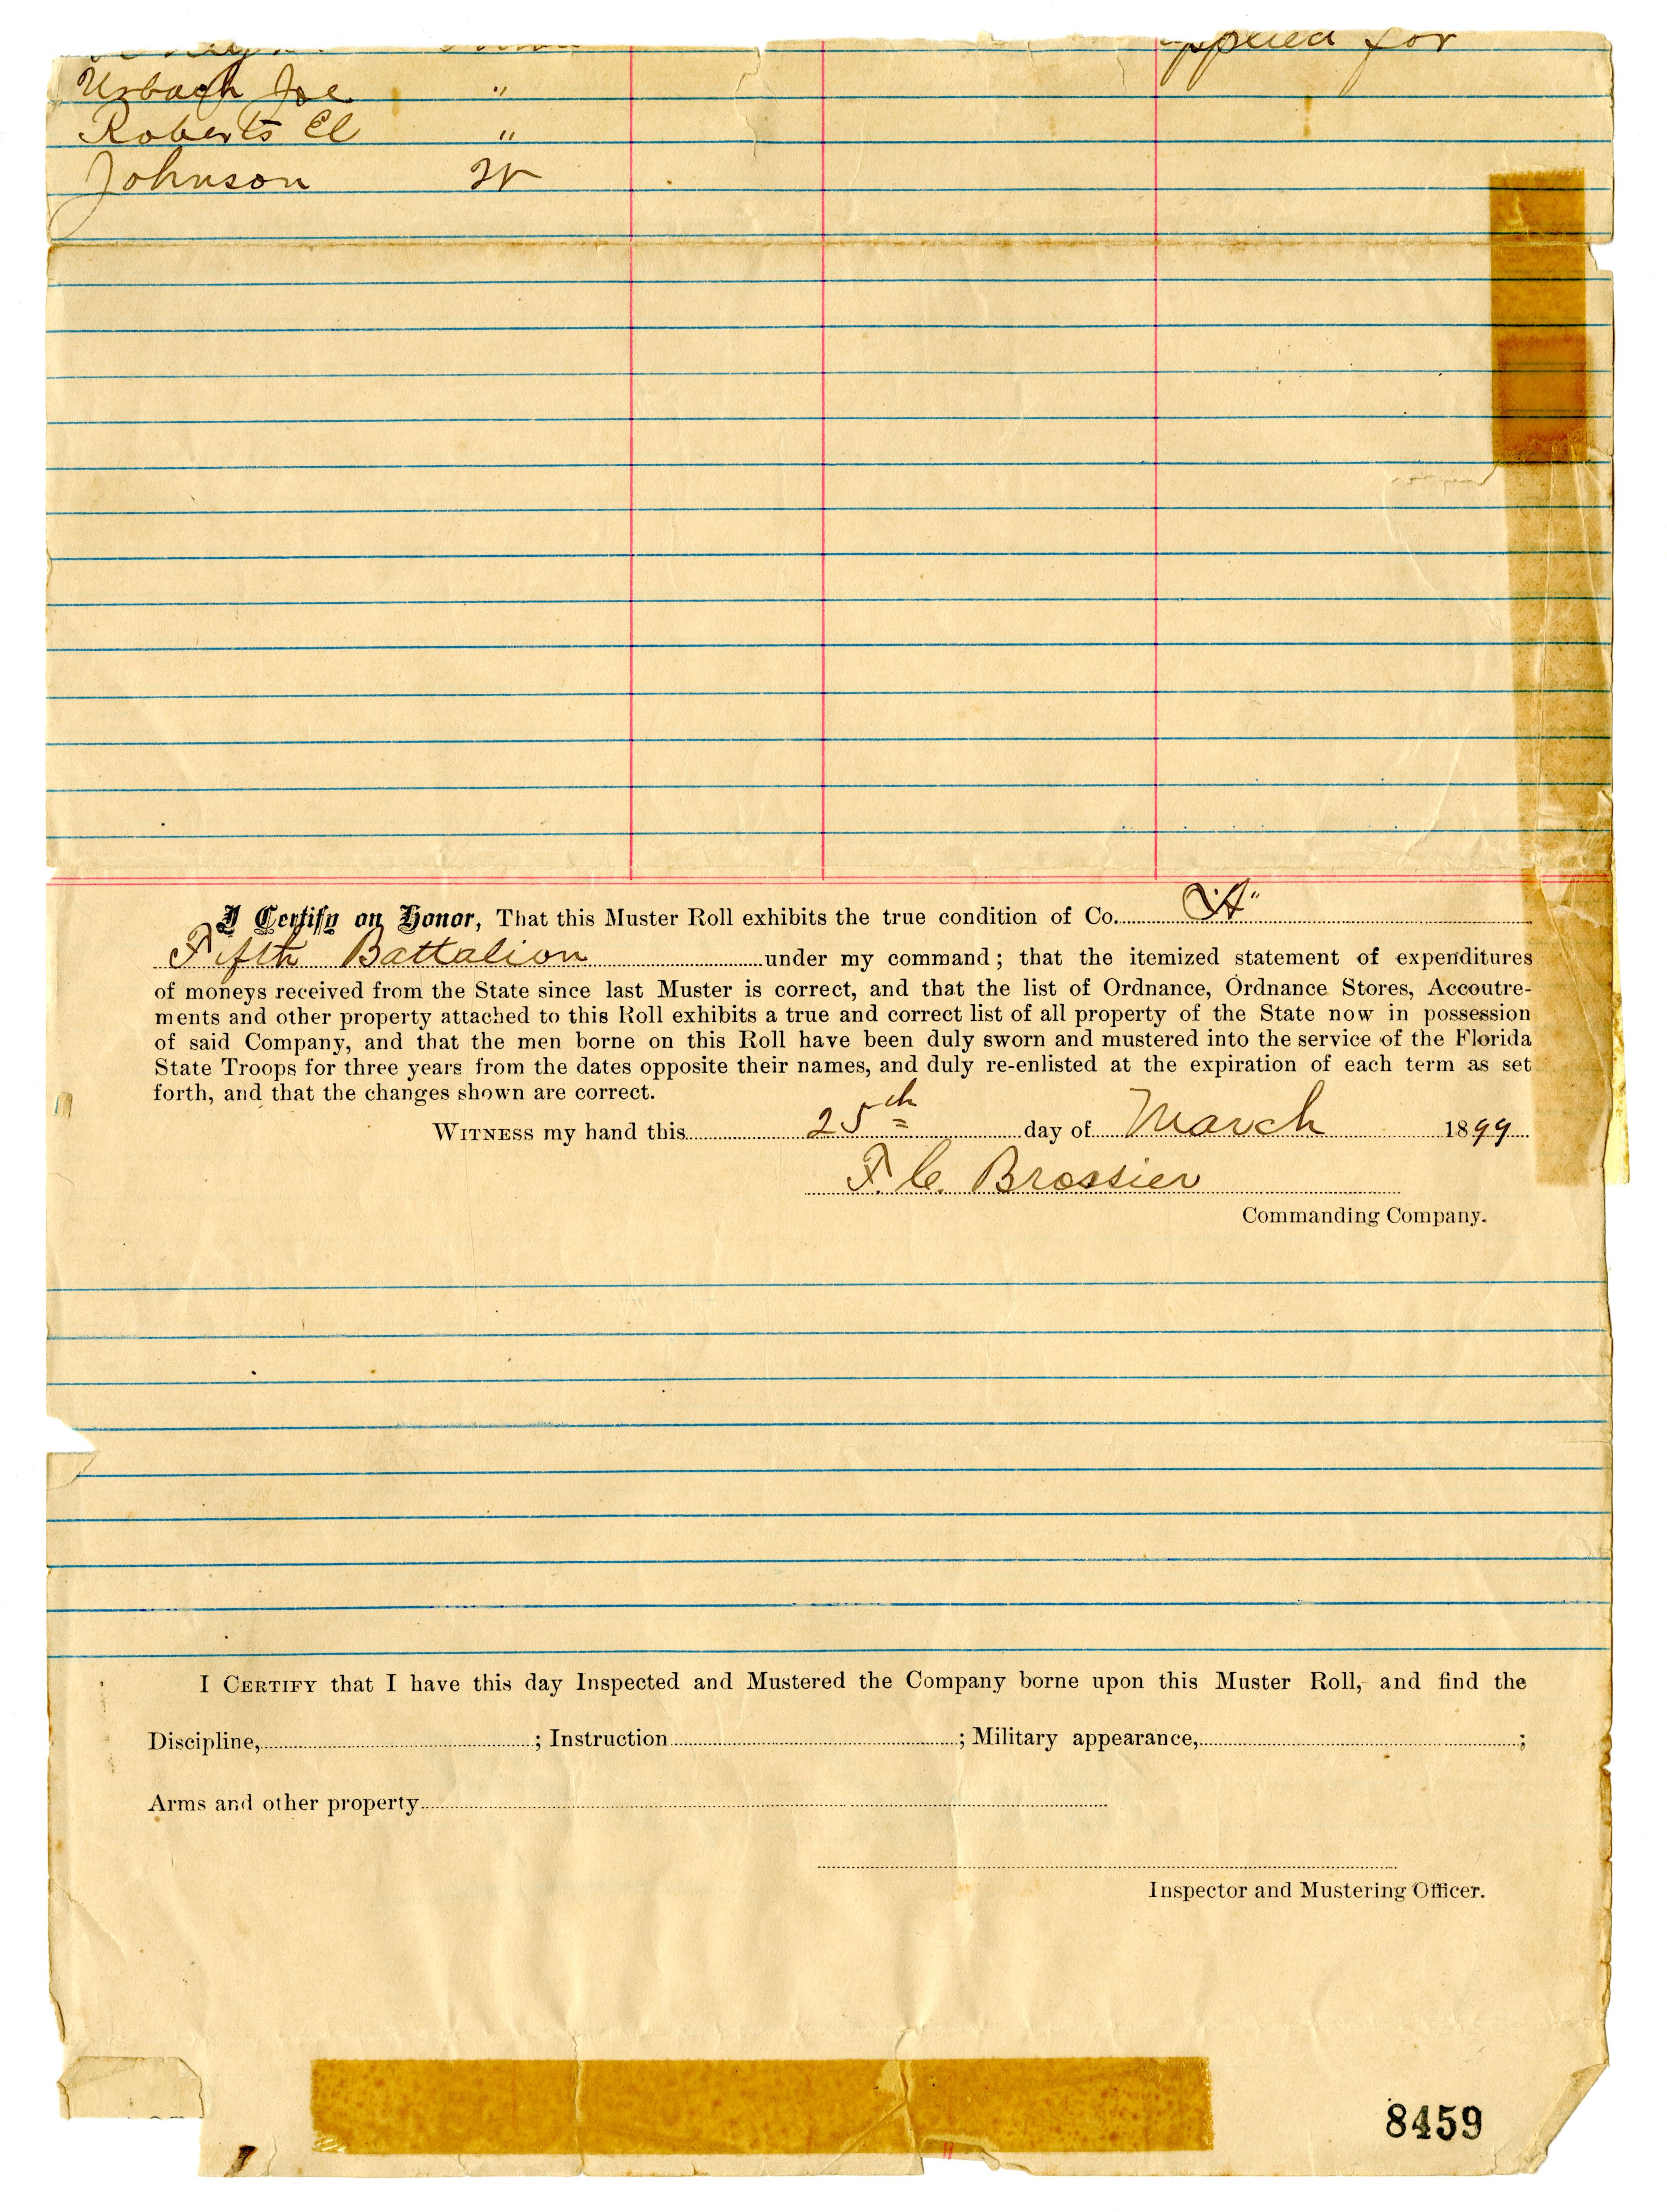 applied for
Urbach Joe "
Roberts El "
Johnson W
I Certify on Honor, That this Muster Roll exhibits the true condition of Co. "A"
Fifth Battalion under my command; that the itemized statement of expenditures
of moneys received from the State since last Muster is correct, and that the list of Ordnance, Ordnance Stores, Accoutre-
ments and other property attached to this Roll exhibits a true and correct list of all property of the State now in possession
of said Company, and that the men borne on this Roll have been duly sworn and mustered into the service of the Florida
State Troops for three years from the dates opposite their names, and duly re-enlisted at the expiration of each term as set
forth, and that the changes shown are correct.
WITNESS my hand this 25th day of March 1899
F. C. Brossier
Commanding Company.
I CERTIFY that I have this day Inspected and Mustered the Company borne upon this Muster Roll, and find the
Discipline, ; Instruction ; Military appearance, ;
Arms and other property
Inspector and Mustering Officer.
8459